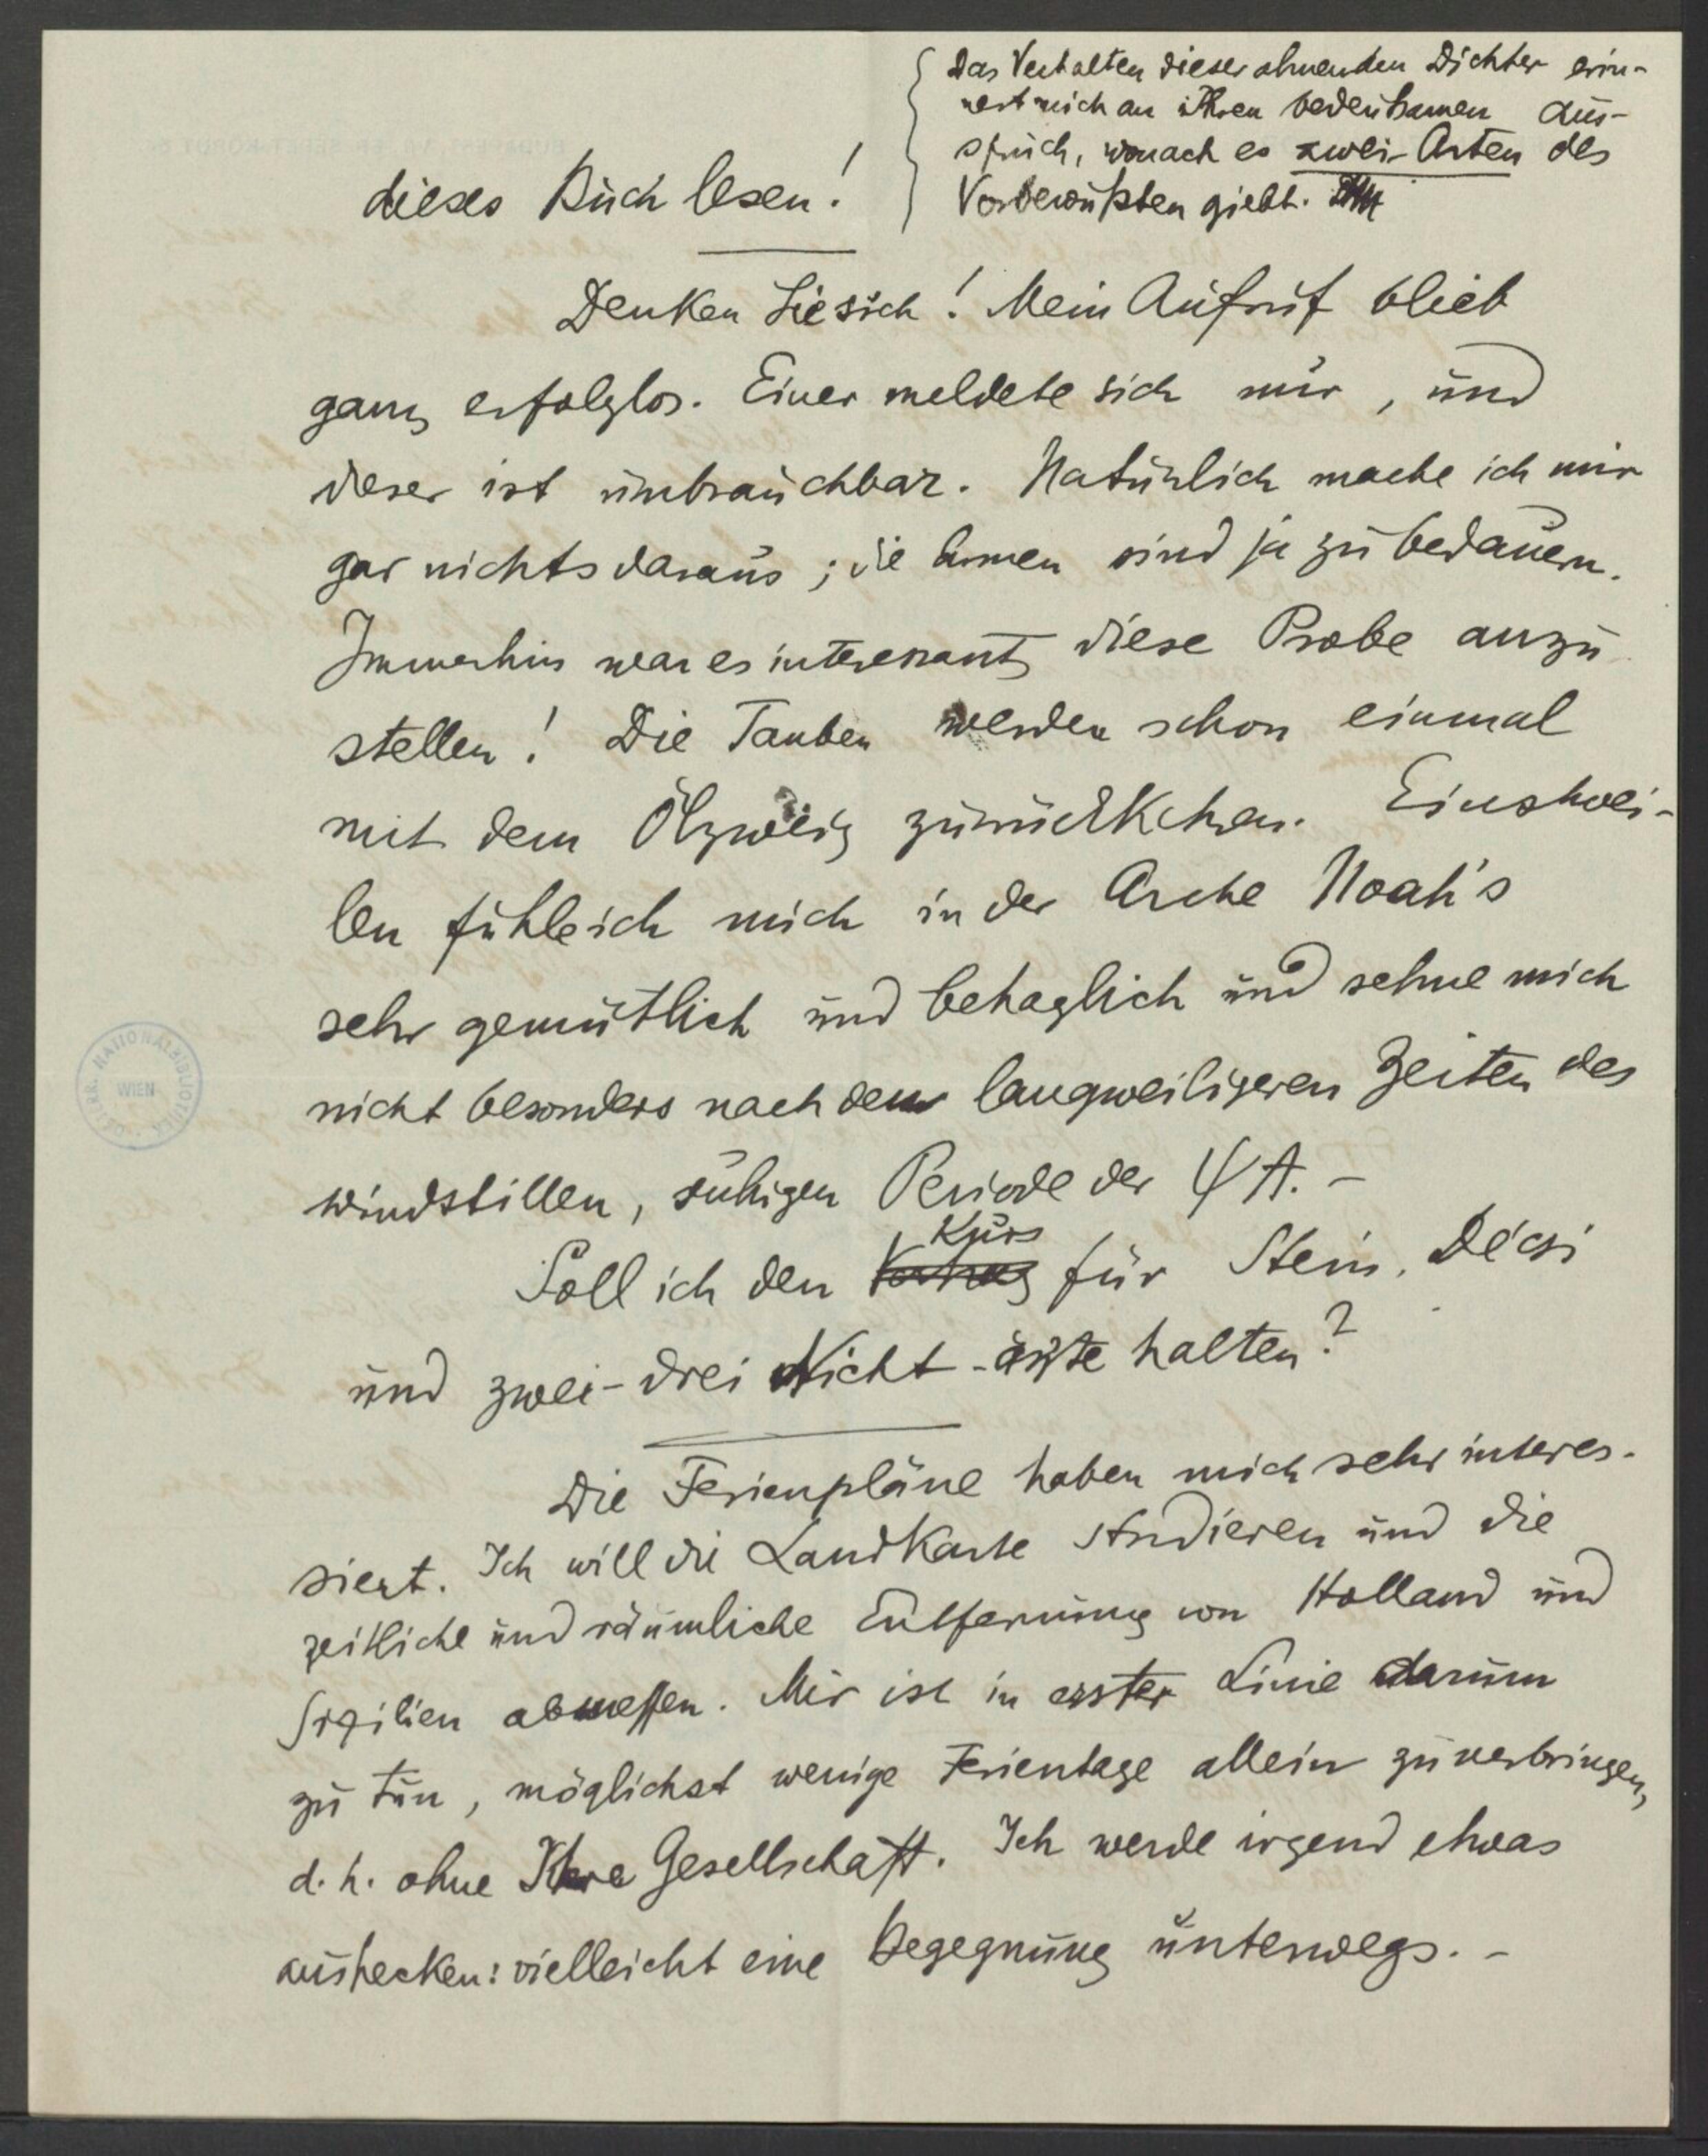 dieses Buch lesen!
Das Verhalten dieser ahnenden Dichter erin-
nert mich an Ihren bedeutsamen Aus-
spruch, wonach es zwei Arten des
Vorbewußten giebt.
Denken Sie sich! Mein Aufruf blieb
ganz erfolglos. Einer meldete sich nur, und
dieser ist unbrauchbar. Natürlich mache ich mir
gar nichts daraus; die Armen sind ja zu bedauern.
Immerhin war es interessant, diese Probe anzu
stellen! Die Tauben werden schon einmal
mit dem Ölzweig zurückkehren. Einstwei-
len fühle ich mich in der Arche Noah's
sehr gemütlich und behaglich und sehne mich
nicht besonders nach den langweiligeren Zeiten des
windstillen, ruhigen Periode der ΨA. –
Kurs
Soll ich den Vortrag für Stein, Décsi
und zwei-drei Nicht-ärzte halten?
Die Ferienpläne haben mich sehr interes-
siert. Ich will die Landkarte studieren und die
zeitliche und räumliche Entfernung von Holland und
Sizilien abmessen. Mir ist in erster Linie darum
zu tun, möglichst wenige Ferientage allein zu verbringen,
d. h. ohne Ihre Gesellschaft. Ich werde irgend etwas
aushecken: vielleicht eine Begegnung unterwegs. –
ÖSTERR. NATIONALBIBLIOTHEK
WIEN